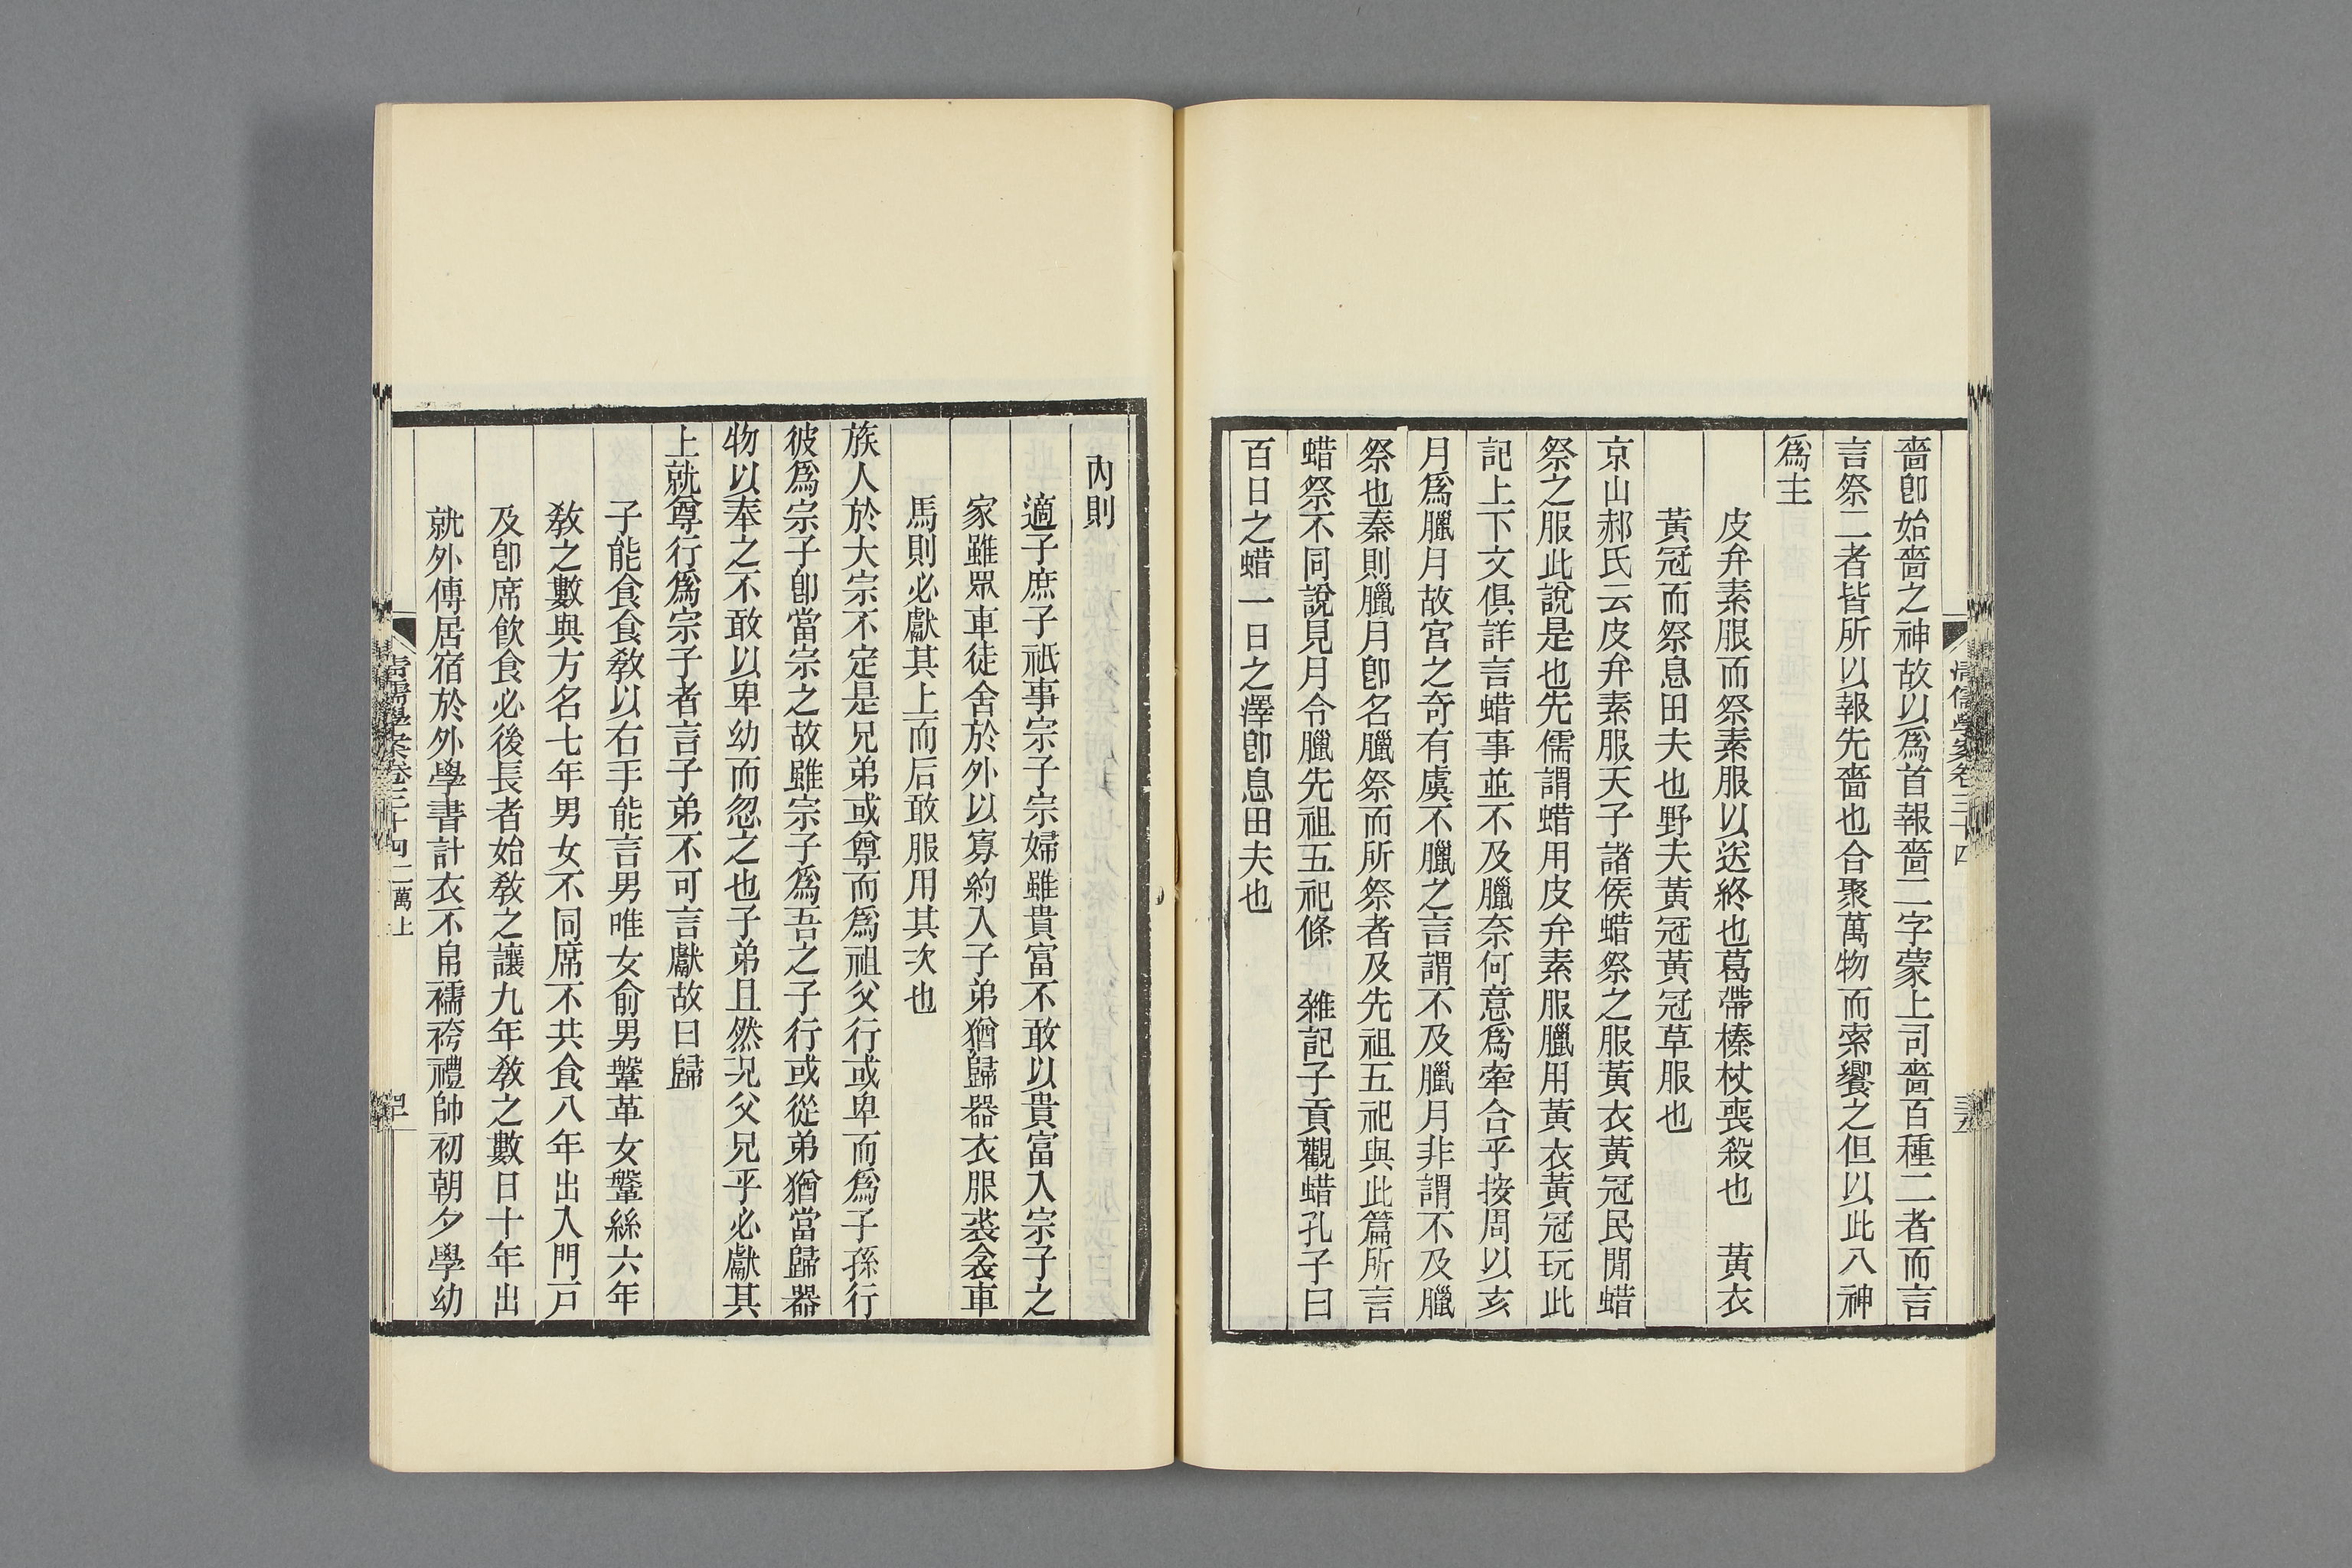 嗇卽始嗇之神故以爲首報嗇二字蒙上司嗇百種二者而言
言祭二者皆所以報先嗇也合聚萬物而索饗之但以此八神
爲主
皮弁素服而祭素服以送終也葛帶榛杖喪殺也　黃衣
黃冠而祭息田夫也野夫黃冠黃冠草服也
京山郝氏云皮弁素服天子諸侯蜡祭之服黃衣黃冠民閒蜡
祭之服此說是也先儒謂蜡用皮弁素服臘用黃衣黃冠玩此
記上下文俱詳言蜡事並不及臘奈何意爲牽合乎按周以亥
月爲臘月故宮之奇有虞不臘之言謂不及臘月非謂不及臘
祭也秦則臘月卽名臘祭而所祭者及先祖五祀與此篇所言
蜡祭不同說見月令臘先祖五祀條　雜記子貢觀蜡孔子曰
百日之蜡一日之澤卽息田夫也
內則
適子庶子祇事宗子宗婦雖貴富不敢以貴富入宗子之
家雖眾車徒舍於外以寡約入子弟猶歸器衣服裘衾車
馬則必獻其上而后敢服用其次也
族人於大宗不定是兄弟或尊而爲祖父行或卑而爲子孫行
彼爲宗子卽當宗之故雖宗子爲吾之子行或從弟猶當歸器
物以奉之不敢以卑幼而忽之也子弟且然況父兄乎必獻其
上就尊行爲宗子者言子弟不可言獻故曰歸
子能食食敎以右手能言男唯女俞男鞶革女鞶絲六年
敎之數與方名七年男女不同席不共食八年出入門戸
及卽席飮食必後長者始敎之讓九年敎之數日十年出
就外傅居宿於外學書計衣不帛襦袴禮帥初朝夕學幼
清儒學案卷三十四